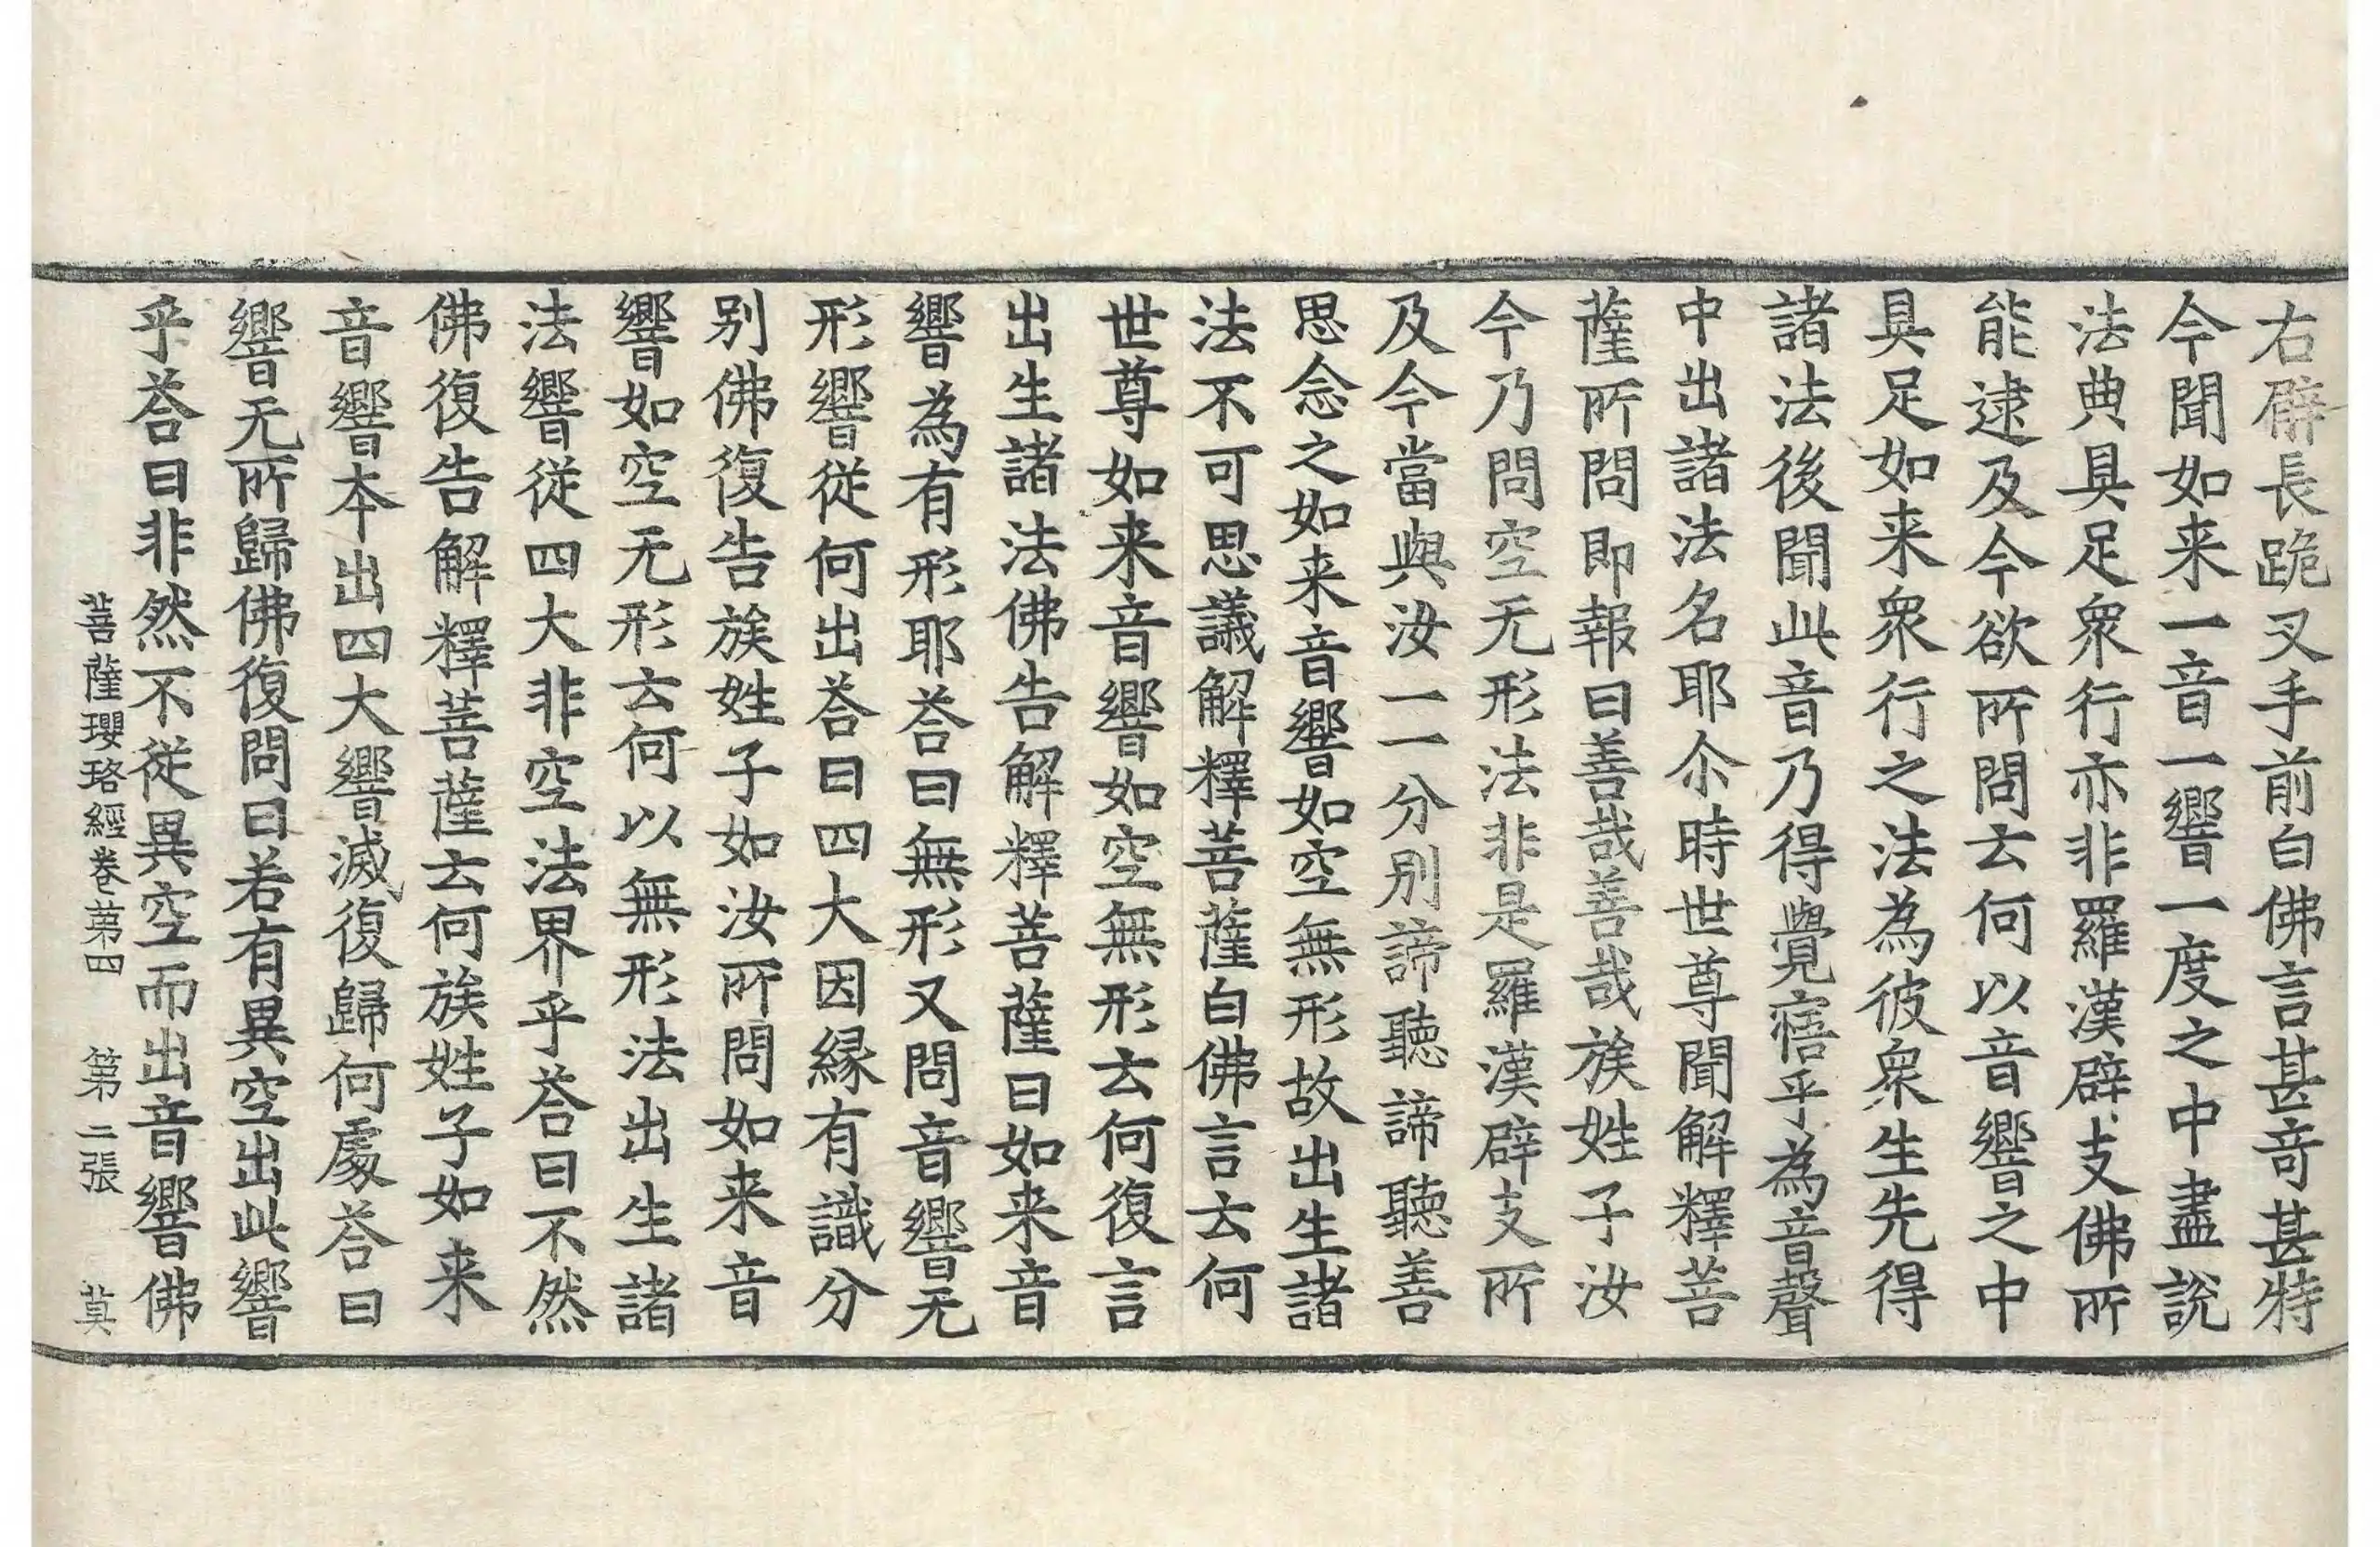 右臂長跪叉手前白佛言甚竒甚特
今聞如来一音一響一度之中盡說
法典具足衆行亦非羅漢辟支佛所
能逮及今欲所問云何以音響之中
具足如来衆行之法為彼衆生先得
諸法後聞此音乃得覺寤乎為音聲
中出諸法名耶尒時世尊聞解釋菩
薩所問即報曰善哉善哉族姓子汝
今乃問空无形法非是羅漢辟支所
及今當與汝一一分別諦聽諦聽善
思念之如来音響如空無形故出生諸
法不可思議解釋菩薩白佛言云何
世尊如来音響如空無形云何復言
出生諸法佛告解釋菩薩曰如来音
響為有形耶荅曰無形又問音響无
形響従何出荅曰四大因縁有識分
別佛復告族姓子如汝所問如来音
響如空无形云何以無形法出生諸
法響従四大非空法界乎荅曰不然
佛復告解釋菩薩云何族姓子如来
音響本出四大響滅復歸何處荅曰
響无所歸佛復問曰若有異空出此響
乎荅曰非然不従異空而出音響佛
菩薩瓔珞經卷第四 第二張 莫